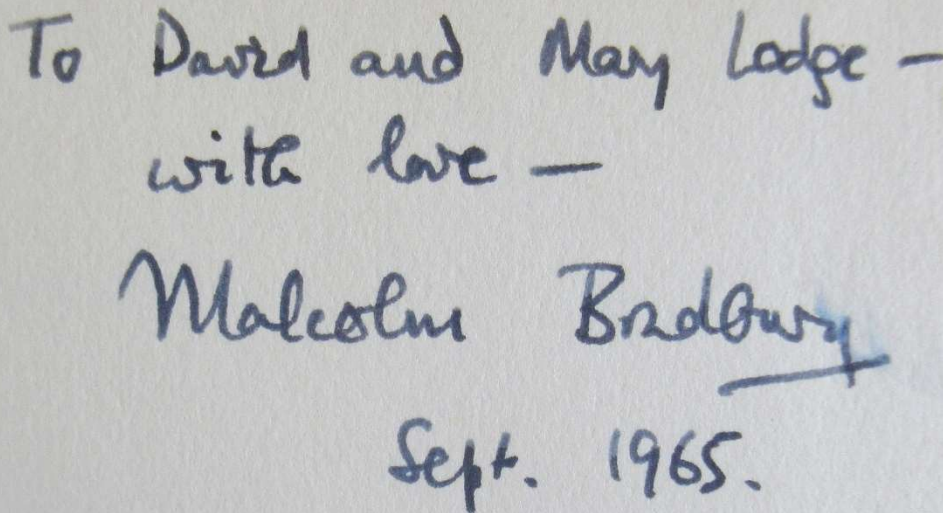 To David and Mary Lodge —
with love —
Malcolm Bradbury
Sept. 1965.